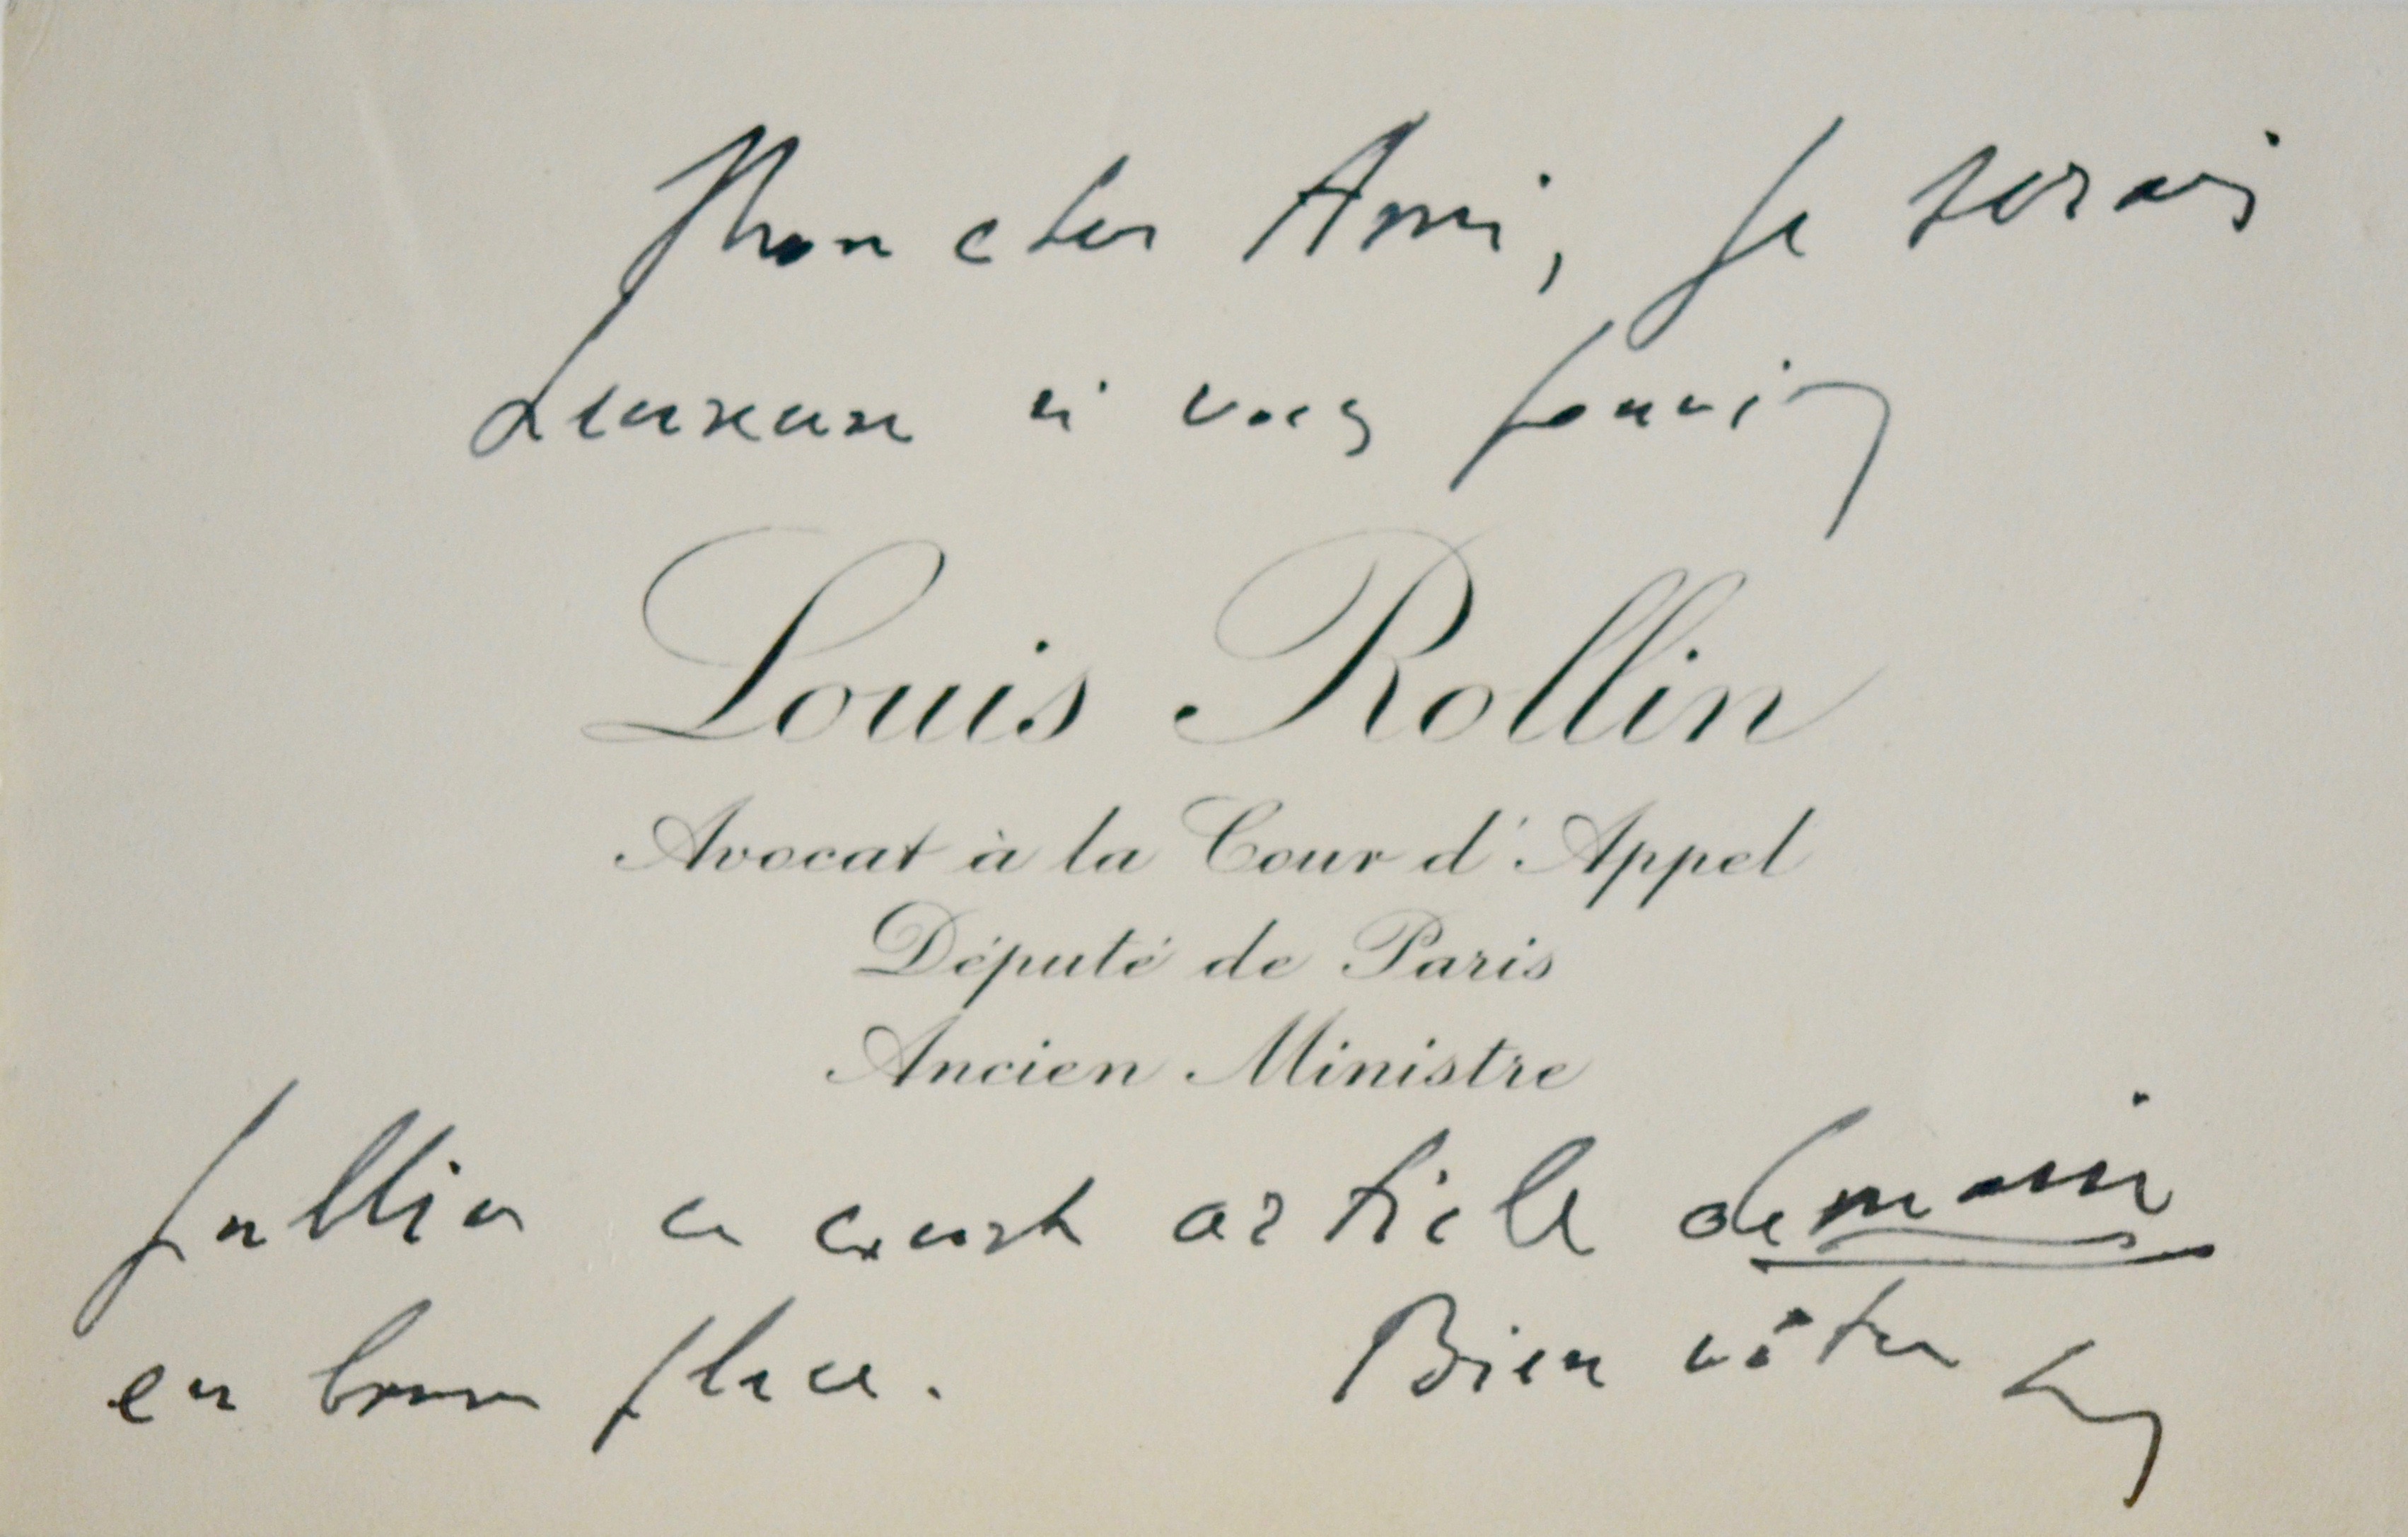 Mon cher Ami, Je serais
heureux si vous pouviez
Louis Rollin
Avocat à la Cour d'Appel
Député de Paris
Ancien Ministre
publier ce court article demain
en bonne place. Bien vôtre